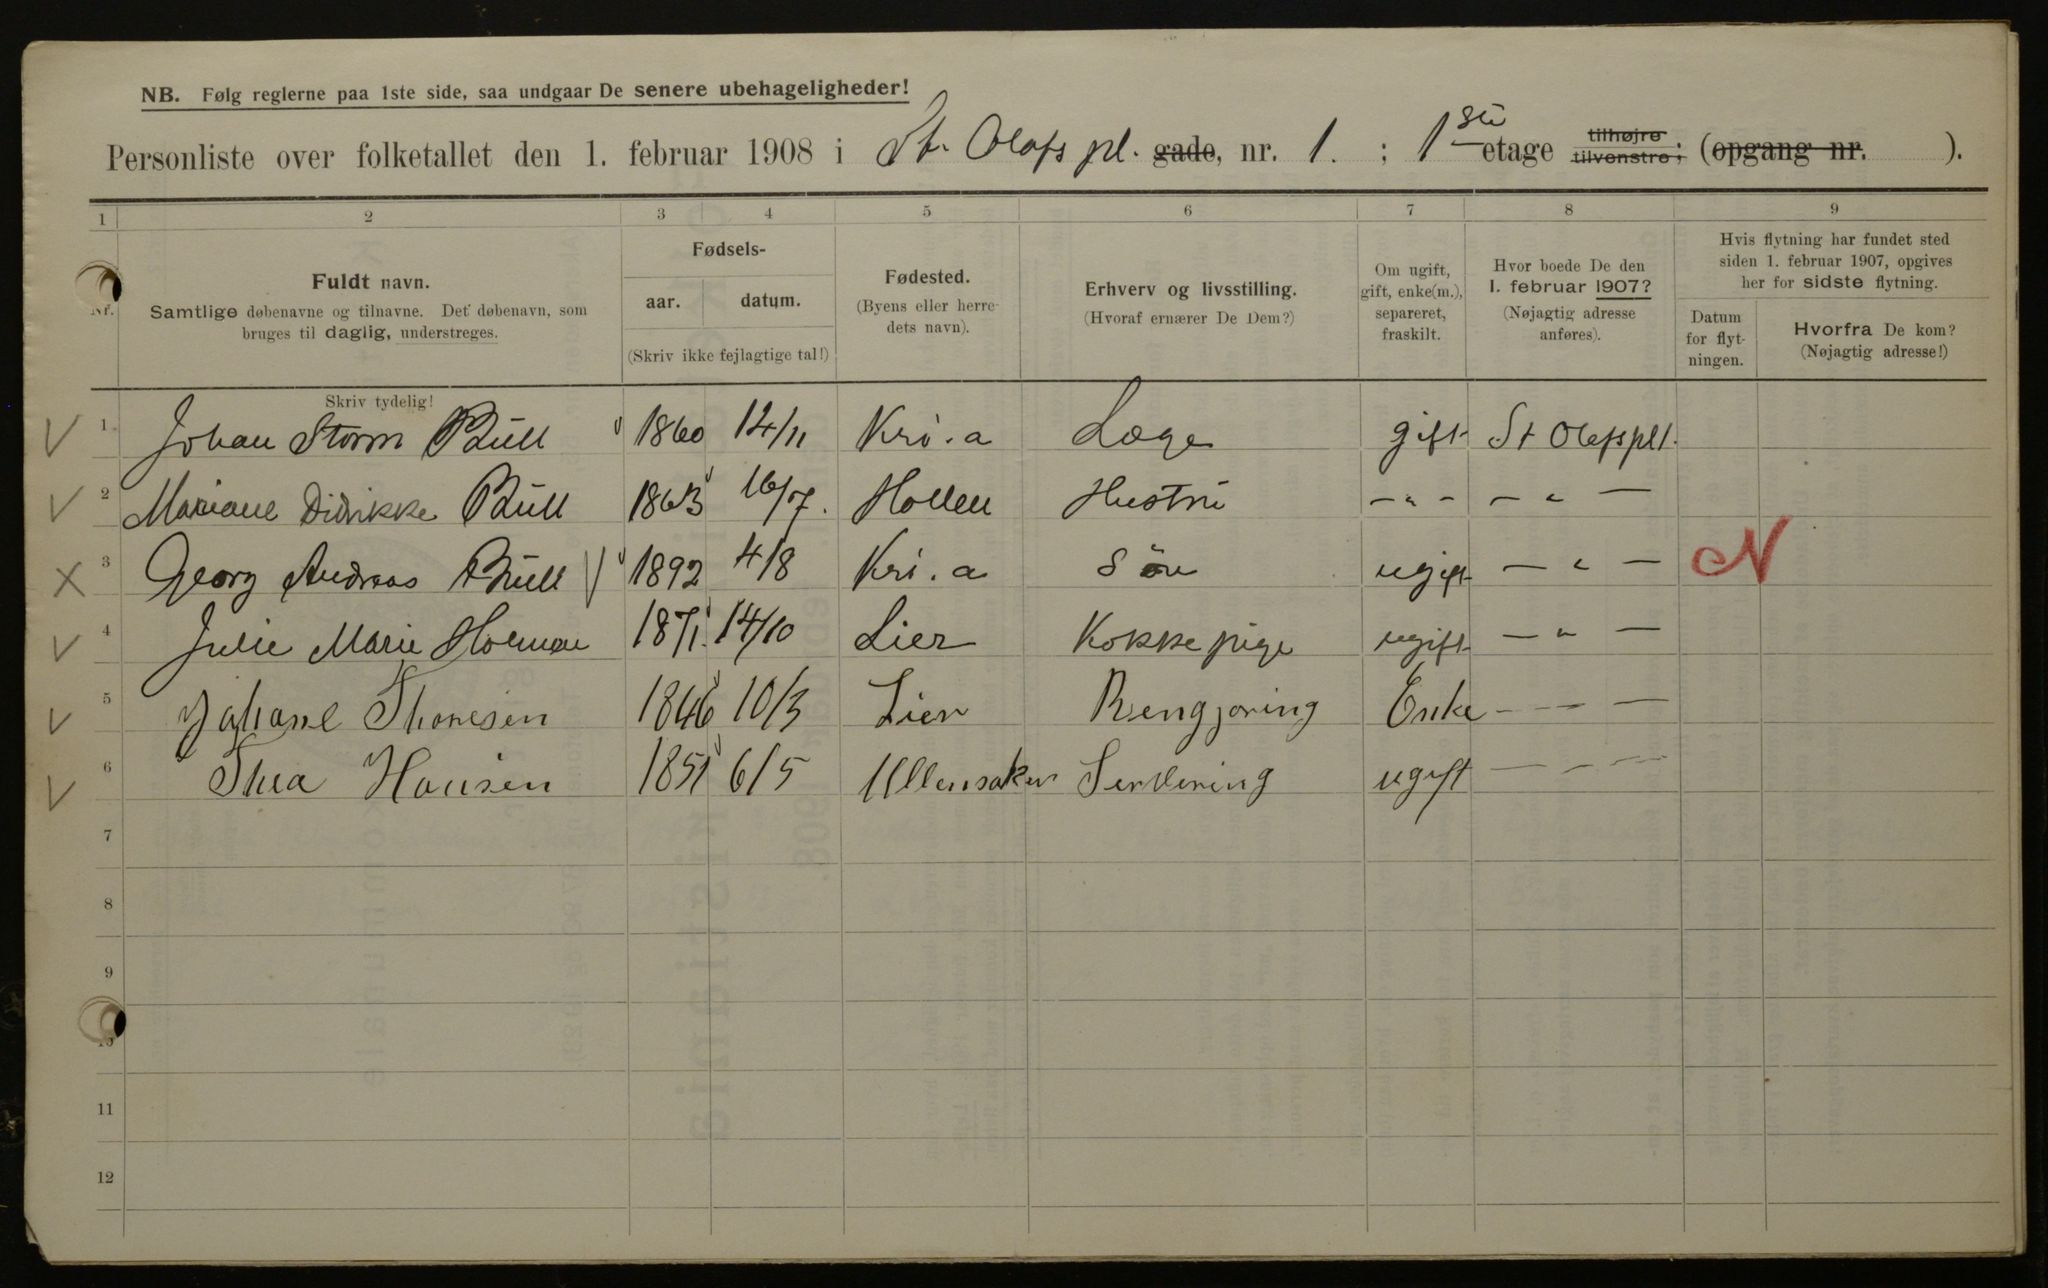 NB. Følg reglerne paa 1ste side, saa undgaar De senere ubehageligheder!
Personliste over folketallet den 1. februar 1908 i St. Olafs pl. gade, nr. 1. ; 1ste etage tilhøjre tilvenstre; (opgang nr. ).
1 2 3 4 5 6 7 8 9
Nr.
Fuldt navn.
Samtlige døbenavne og tilnavne. Det døbenavn, som
bruges til daglig, understreges.
Fødsels-
aar. datum.
(Skriv ikke fejlagtige tal!)
Fødested.
(Byens eller herre-
dets navn).
Erhverv og livsstilling.
(Hvoraf ernærer De Dem?)
Om ugift,
gift, enke(m.),
separeret,
fraskilt.
Hvor boede De den
1. februar 1907?
(Nøjagtig adresse
anføres).
Hvis flytning har fundet sted
siden 1. februar 1907, opgives
her for sidste flytning.
Datum
for flyt-
ningen.
Hvorfra De kom?
(Nøjagtig adresse!)
Skriv tydelig!
1 Johan Storm Bull 1860 14/11 Kri.a Læge gift St Olafs pl 1.
2 Mariane Didrikke Bull 1863 16/7. Hollen Hustru - " - - " -
3 Georg Andreas Bull 1892 4/8 Kri.a Søn ugift - " - N
4 Julie Marie 1871. 14/10 Lier Kokkepige ugift - " -
5 Johane Thoresen 1846 10/3 Lier Rengjøring Enke - - -
6 Thea Hansen 1851 6/5 Ullensaker Servering ugift - - -
7
8
9
10
11
12